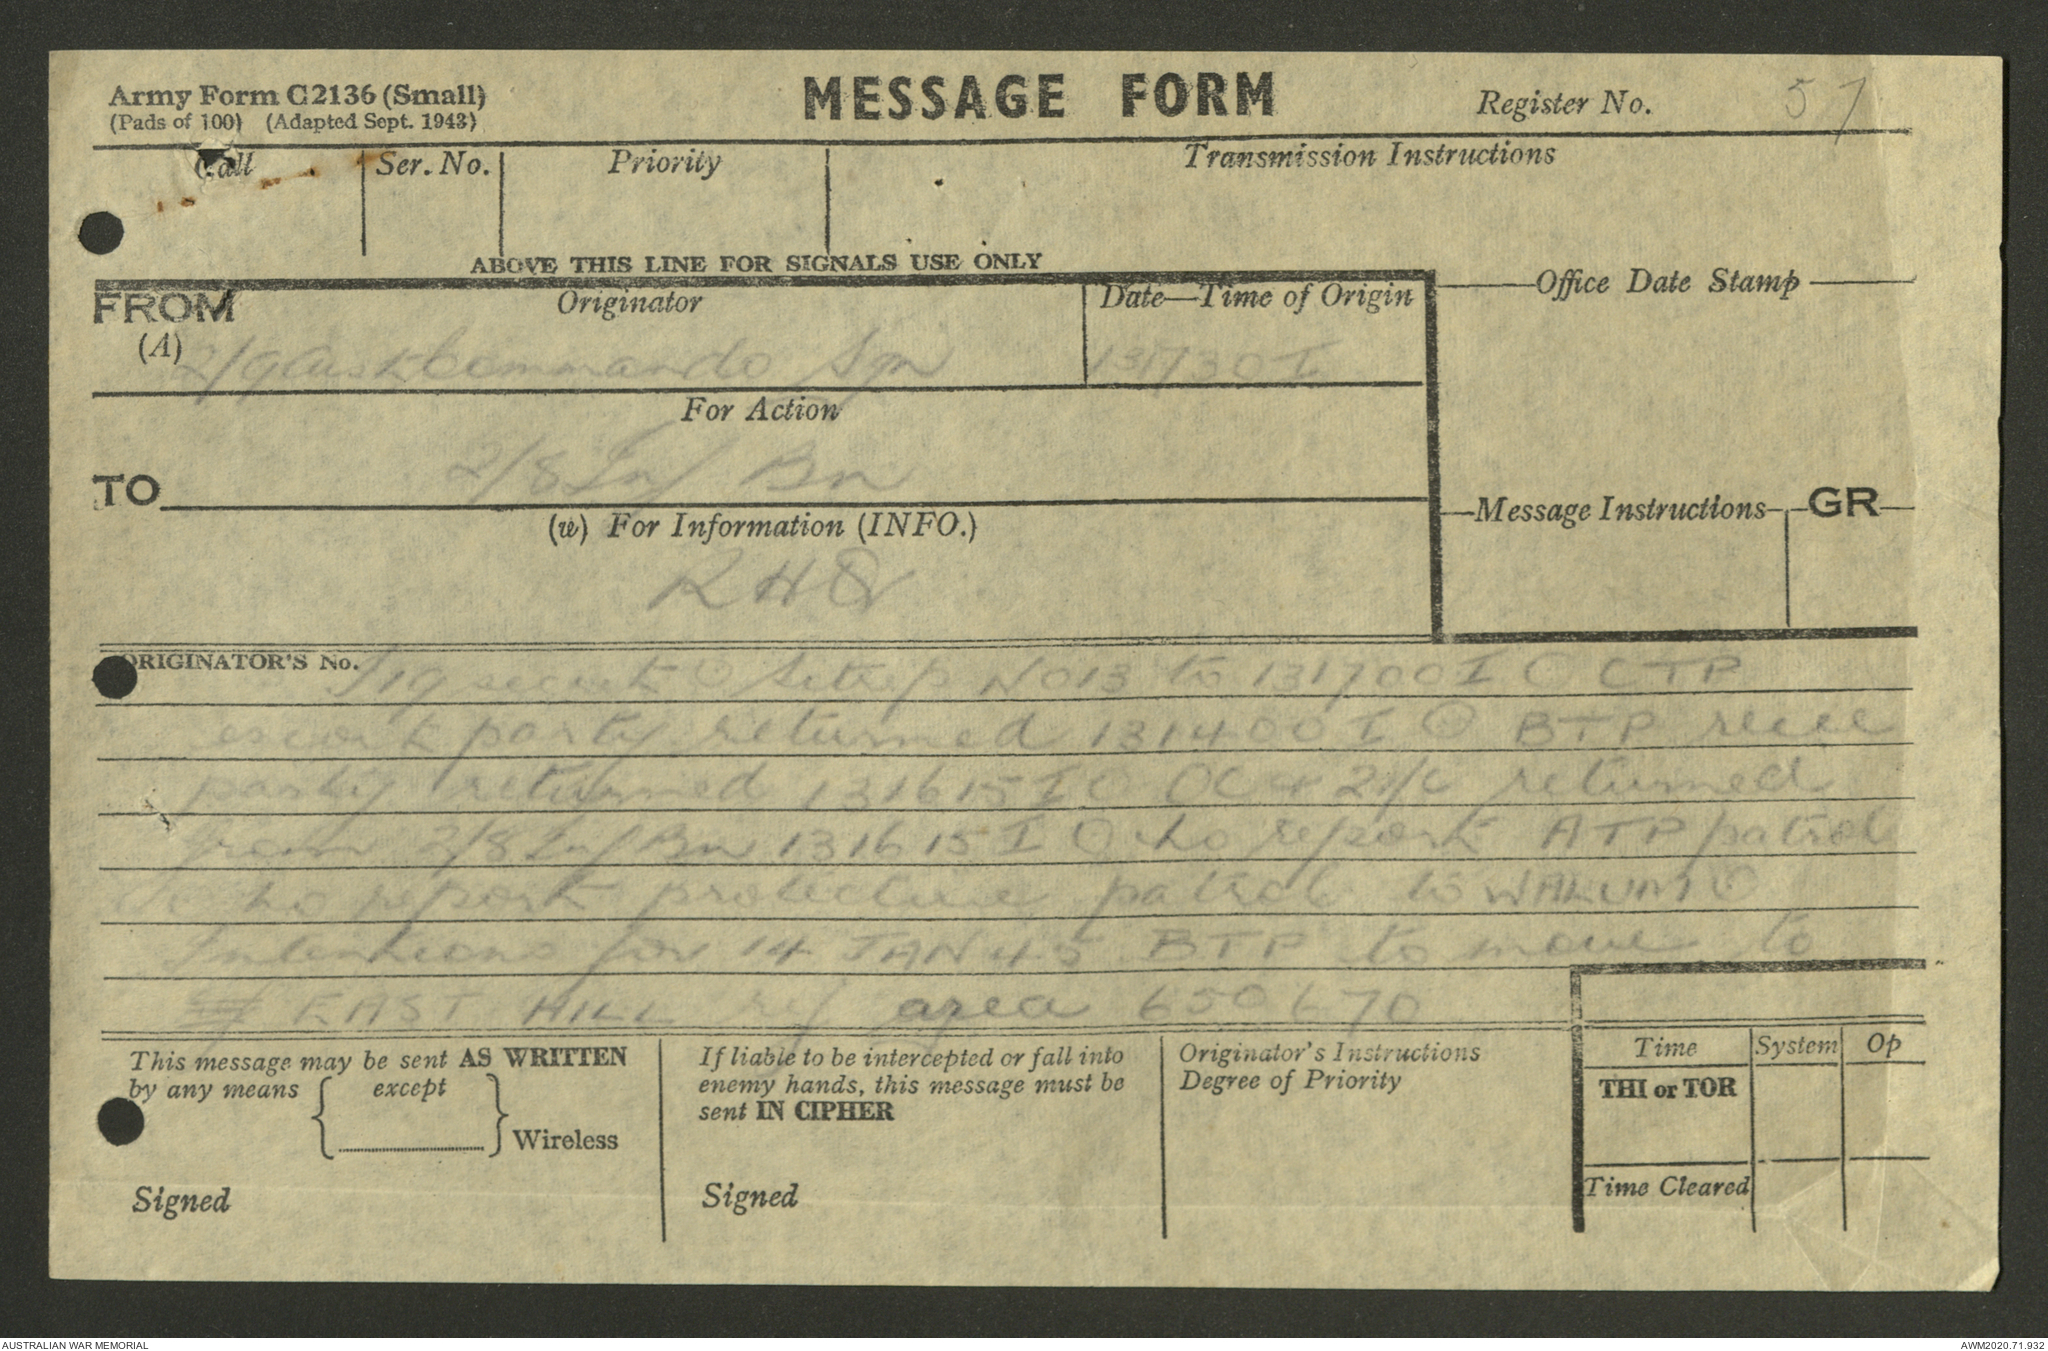 Army Form C2136 (Small)
(Pads of 100) (Adapted Sept. 1943)
MESSAGE FORM
Register No. 57
Call
Ser. No.
Priority
Transmission Instructions
ABOVE THIS LINE FOR SIGNALS USE ONLY
FROM
(A)
Originator
Date—Time of Origin
Office Date Stamp
2/9 Aust Commando Sqn
131730 I
For Action
TO
2/8 Inf Bn
Message Instructions
GR
(w) For Information (INFO.)
RHQ
ORIGINATOR'S No.
Sitrep No 13 to 131700 I O CTP
escort party returned 131400 I O BTP recce
party returned 131615 I O OC + 2i/c returned
from 2/8 Inf Bn 131615 I O No report ATP patrol
No report protective patrol to WALUM O
Intentions for 14 JAN 45 BTP to move to
EAST HILL ref area 650670
This message may be sent AS WRITTEN
by any means except
Wireless
Signed
If liable to be intercepted or fall into
enemy hands, this message must be
sent IN CIPHER
Signed
Originator's Instructions
Degree of Priority
Time
System
Op
THI or TOR
Time Cleared
AUSTRALIAN WAR MEMORIAL
AWM2020.71.932